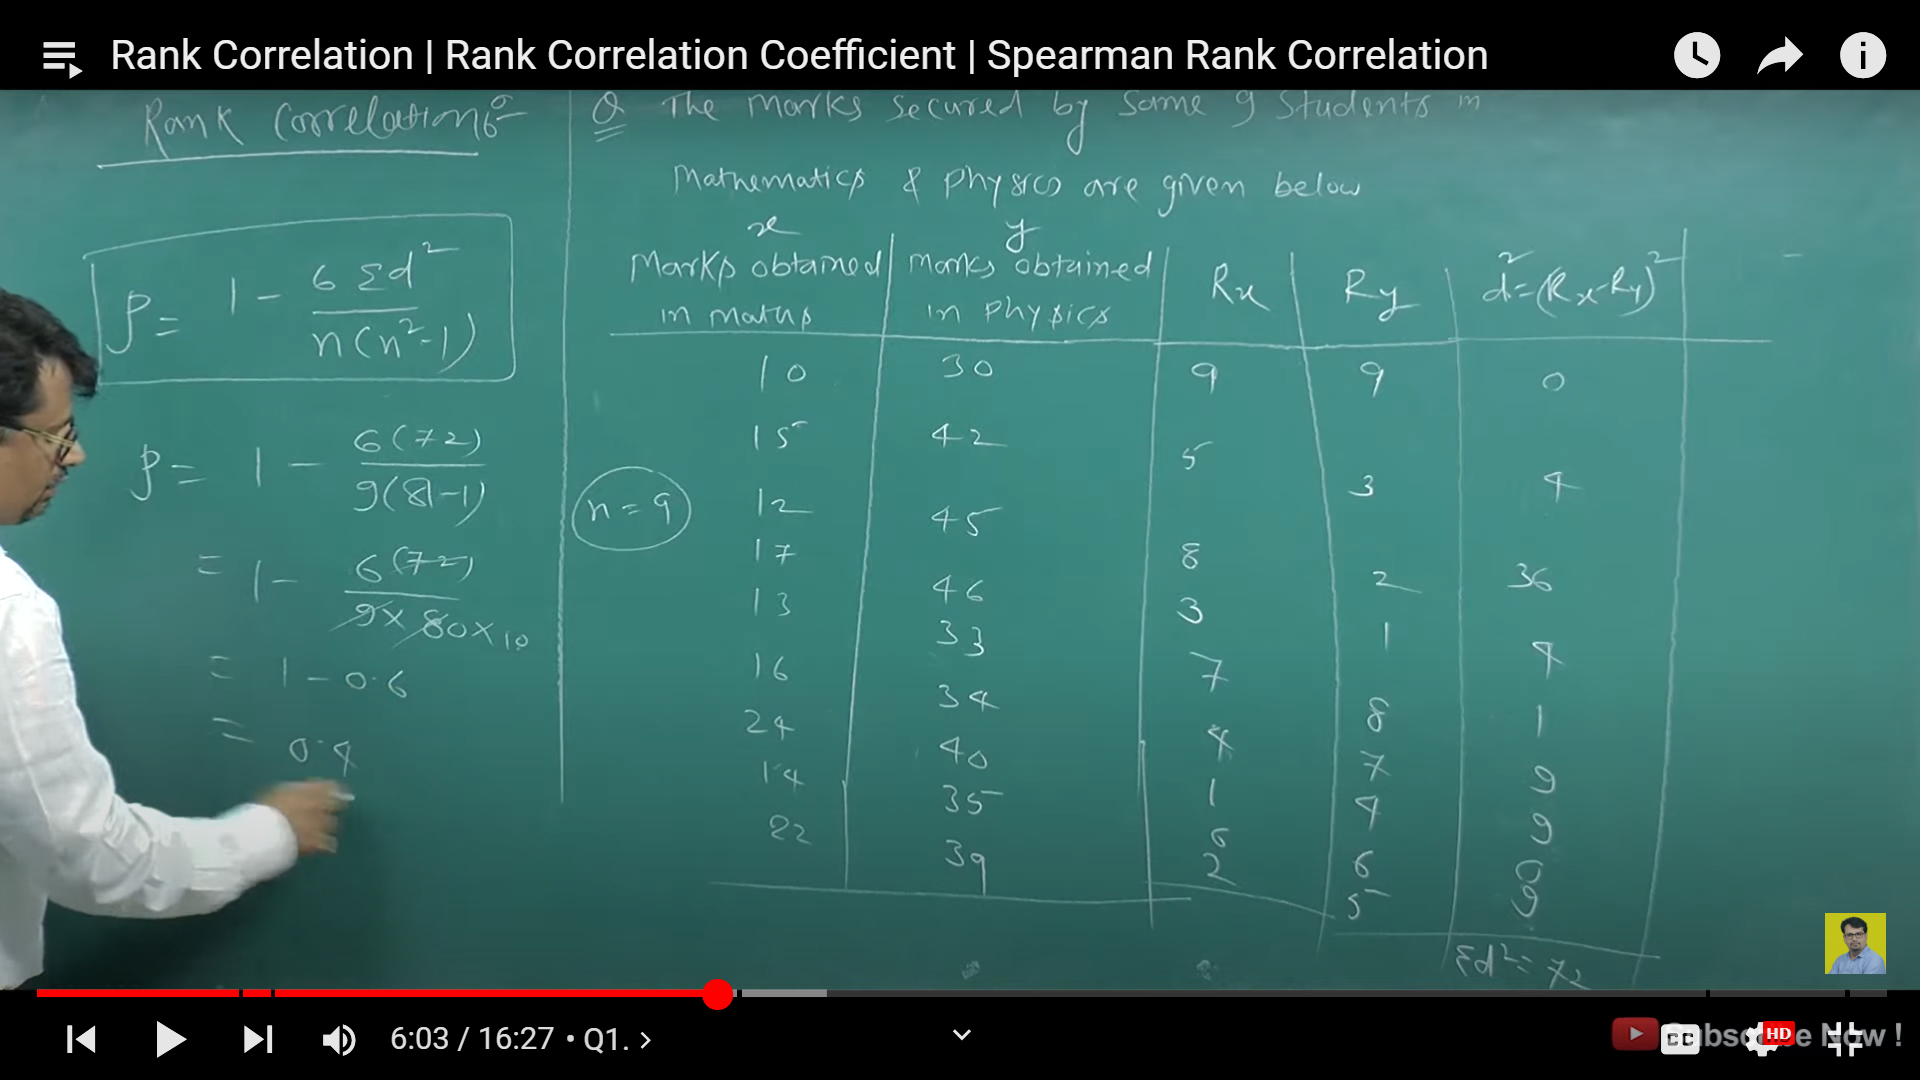 Rank Correlation | Rank Correlation Coefficient | Spearman Rank Correlation
Rank Correlation:-
ρ = 1 - 6 Σd² / n(n²-1)
ρ = 1 - 6(72) / 9(81-1)
= 1 - 6(72) / 9 x 80 x 10
= 1 - 0.6
= 0.4
Q The Marks Secured by Some 9 Students in
Mathematics & Physics are given below
n = 9
x y
Marks obtained in maths | Marks obtained in Physics | Rx | Ry | d² = (Rx-Ry)²
10 30 9 9 0
15 42 5 3 4
12 45 8 2 36
17 46 3 1 4
13 33 7 8 1
16 34 4 7 9
24 40 1 4 9
14 35 6 6 0
22 39 2 5 9
Σd² = 72
6:03 / 16:27 • Q1. >
CC HD
Subscribe Now !